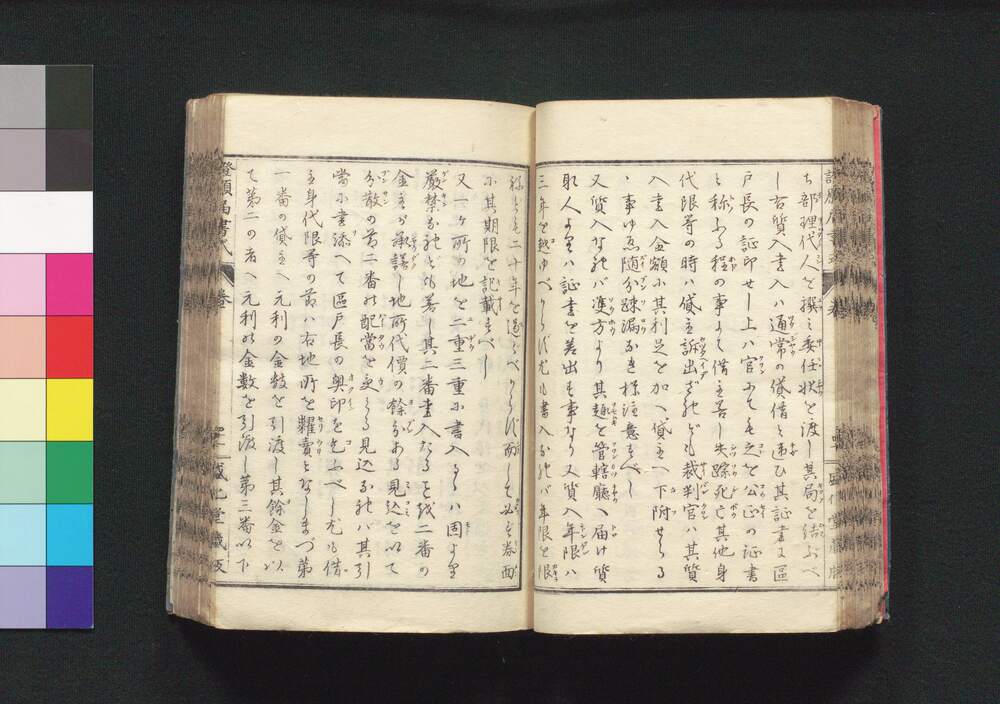 ち部理代人を撰ミ委任状を渡し其局を結ぶべ
し右質入書入ハ通常の貸借と違ひ其証書ニ區
戸長の証印せし上ハ官にても之を公正の証書
と称ふる程の事よて借主若し失踪死亡其他身
代限等の時ハ貸主訴出ざれども裁判官ハ其質
入書入金額小其利足を加へ貸主へ下附せらる
事ゆゑ随分疎漏なき様注意すべし
又質入なれバ双方より其趣を管轄廳へ届け質
取人よりハ証書を差出す事なり又質入年限ハ
三年を越ゆべからず尤も書入なれバ年限を限
ねども二十年を過ぐべからず而して必ず券面
小其期限を記載すべし
又一ヶ所の地を二重三重小書入るゝハ固より
嚴禁なれども若し其二番書入たるを以二番の
金主が承諾し地所代價の餘分ある見込を以て
分散の節二番の配當を受る見込なれバ其引
當小書添へて區戸長の奥印を乞ふべし尤も借
主身代限等の節ハ右地所を糶賣となしまづ第
一番の貸主へ元利の金数を引渡し其餘金を以
て第二の者へ元利の金数を引渡し第三番以下
證願届書式 巻
盛化堂藏版